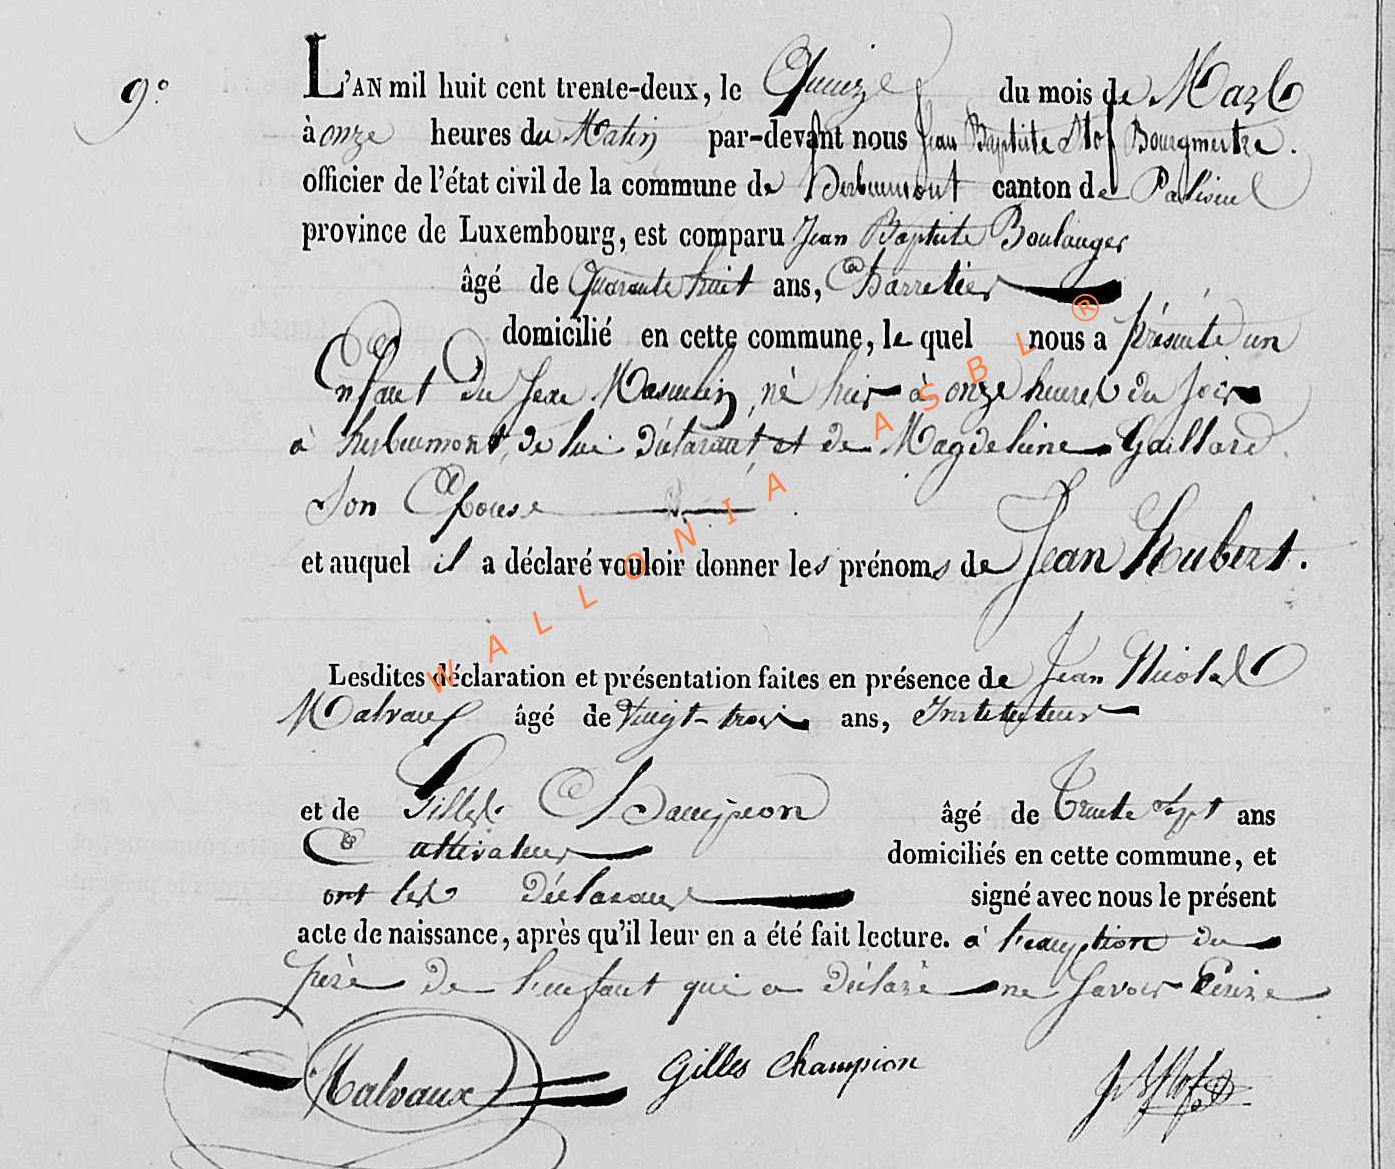 9.°
L'AN mil huit cent trente-deux, le Quinze du mois de Mars
à onze heures du Matin par-devant nous Jean Baptiste Stof Bourgmestre.
officier de l'état civil de la commune de herbeumont canton de Paliseul
province de Luxembourg, est comparu Jean Baptiste Boulanger
âgé de Quarante huit ans, Charretier
domicilié en cette commune, le quel nous a présenté un
Enfant du Sexe Masculin, né hier à onze heures du soir
à herbeumont, de lui déclarant et de Magdeleine Gaillard
Son Epouse
et auquel il a déclaré vouloir donner les prénoms de Jean Hubert.
Lesdites déclaration et présentation faites en présence de Jean Nicolas
Malvaux âgé de Vingt-trois ans, Instituteur
et de Gilles Champion âgé de Trente Sept ans
Cultivateur domiciliés en cette commune, et
ont les déclarans signé avec nous le présent
acte de naissance, après qu'il leur en a été fait lecture. à l'exception du
père de l'enfant qui a déclaré ne savoir Ecrire
Malvaux Gilles Champion
WALLONIA ASBL ®